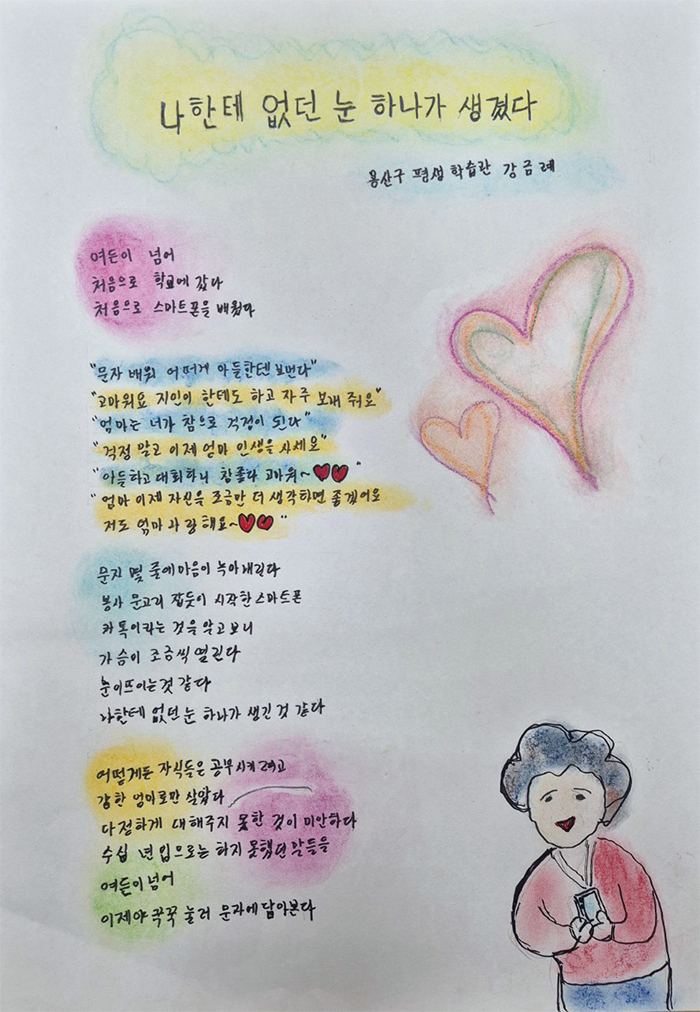 나한테 없던 눈 하나가 생겼다
용산구 평생 학습관 강금례
여든이 넘어
처음으로 학교에 갔다
처음으로 스마트폰을 배웠다
"문자 배워 어떠게 아들한텐 보낸다"
"고마워요 지인이 한테도 하고 자주 보내 줘요"
"엄마는 너가 참으로 걱정이 된다"
"걱정 말고 이제 엄마 인생을 사세요"
"아들하고 대화하니 참좋다 고마워~❤❤"
"엄마 이제 자신을 조금만 더 생각하면 좋겠어요
저도 엄마 사랑해요~❤❤"
문자 몇 줄에 마음이 녹아내린다
봉사 문고리 잡듯이 시작한 스마트폰
카톡이라는 것을 알고 보니
가슴이 조금씩 열린다
눈이뜨이는것 같다
나한테 없던 눈 하나가 생긴 것 같다
어떻게든 자식들은 공부시키려고
강한 엄마로만 살았다
다정하게 대해주지 못한 것이 미안하다
수십 년 입으로는 하지 못했던 말들을
여든이 넘어
이제야 꾹꾹 눌러 문자에 담아본다